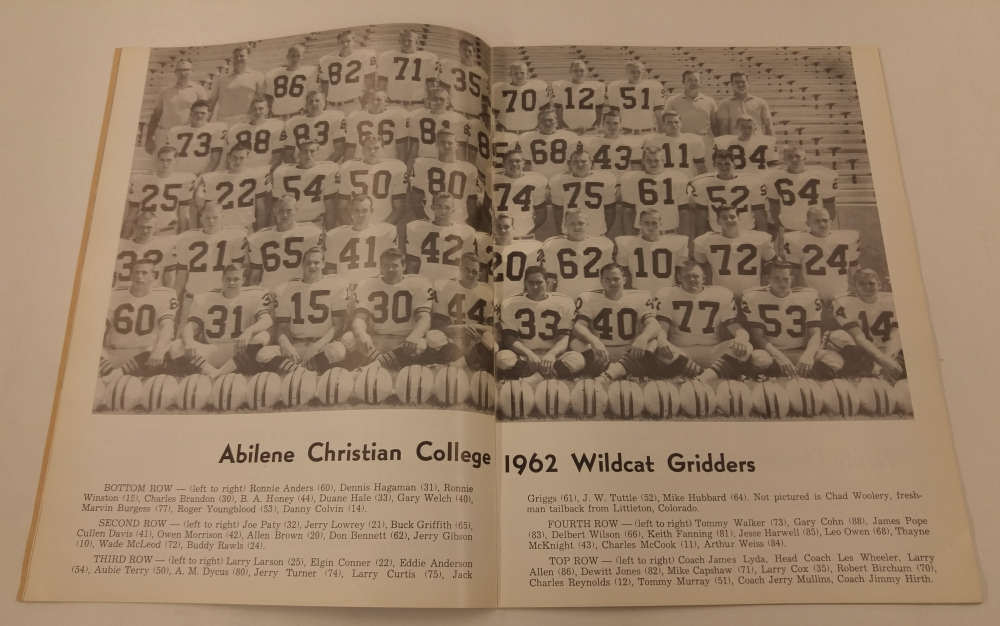 86 82 71 35 70 12 51
73 88 83 66 8 8 5 68 43 11 84
25 22 54 50 80 74 75 61 52 64
32 21 65 41 42 20 62 10 72 24
60 31 15 30 44 33 40 77 53 14
Abilene Christian College 1962 Wildcat Gridders
BOTTOM ROW — (left to right) Ronnie Anders (60), Dennis Hagaman (31), Ronnie
Winston (15), Charles Brandon (30), B. A. Honey (44), Duane Hale (33), Gary Welch (40),
Marvin Burgess (77), Roger Youngblood (53), Danny Colvin (14).
SECOND ROW — (left to right) Joe Paty (32), Jerry Lowrey (21), Buck Griffith (65),
Cullen Davis (41), Owen Morrison (42), Allen Brown (20), Don Bennett (62), Jerry Gibson
(10), Wade McLeod (72), Buddy Rawls (24).
THIRD ROW — (left to right) Larry Larson (25), Elgin Conner (22), Eddie Anderson
(54), Aubie Terry (50), A. M. Dycus (80), Jerry Turner (74), Larry Curtis (75), Jack
Griggs (61), J. W. Tuttle (52), Mike Hubbard (64). Not pictured is Chad Woolery, fresh-
man tailback from Littleton, Colorado.
FOURTH ROW — (left to right) Tommy Walker (73), Gary Cohn (88), James Pope
(83), Delbert Wilson (66), Keith Fanning (81), Jesse Harwell (85), Leo Owen (68), Thayne
McKnight (43), Charles McCook (11), Arthur Weiss (84).
TOP ROW — (left to right) Coach James Lyda, Head Coach Les Wheeler, Larry
Allen (86), Dewitt Jones (82), Mike Capshaw (71), Larry Cox (35), Robert Birchum (70),
Charles Reynolds (12), Tommy Murray (51), Coach Jerry Mullins, Coach Jimmy Hirth.